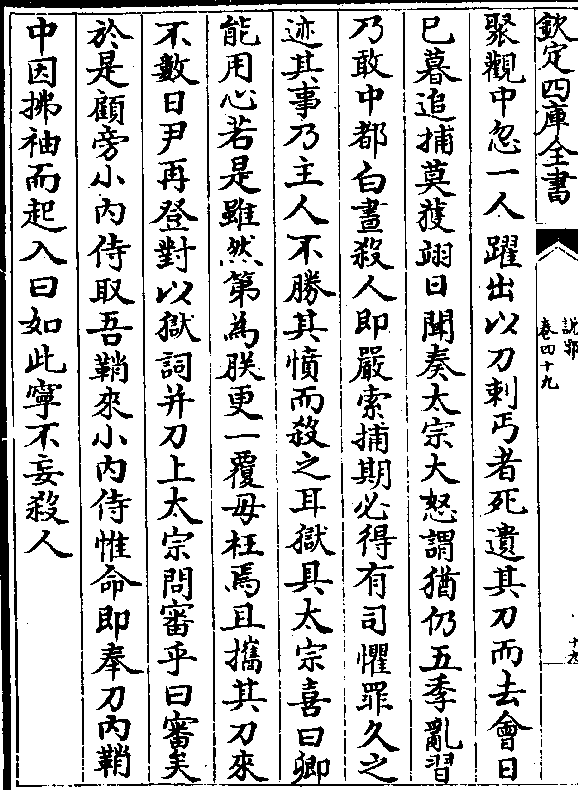 欽定四庫全書
說郛
卷四十九
聚觀中忽一人躍出以刀刺丐者死遺其刀而去會日
已暮追捕莫獲翊日聞奏太宗大怒謂猶仍五季亂習
乃敢中都白晝殺人即嚴索捕期必得有司懼罪久之
迹其事乃主人不勝其憤而殺之耳獄具太宗喜曰卿
能用心若是雖然第為朕更一覆毋枉焉且攜其刀來
不數日尹再登對以獄詞并刀上太宗問審乎曰審矣
於是顧旁小內侍取吾鞘來小內侍惟命即奉刀內鞘
中因拂袖而起入曰如此寧不妄殺人